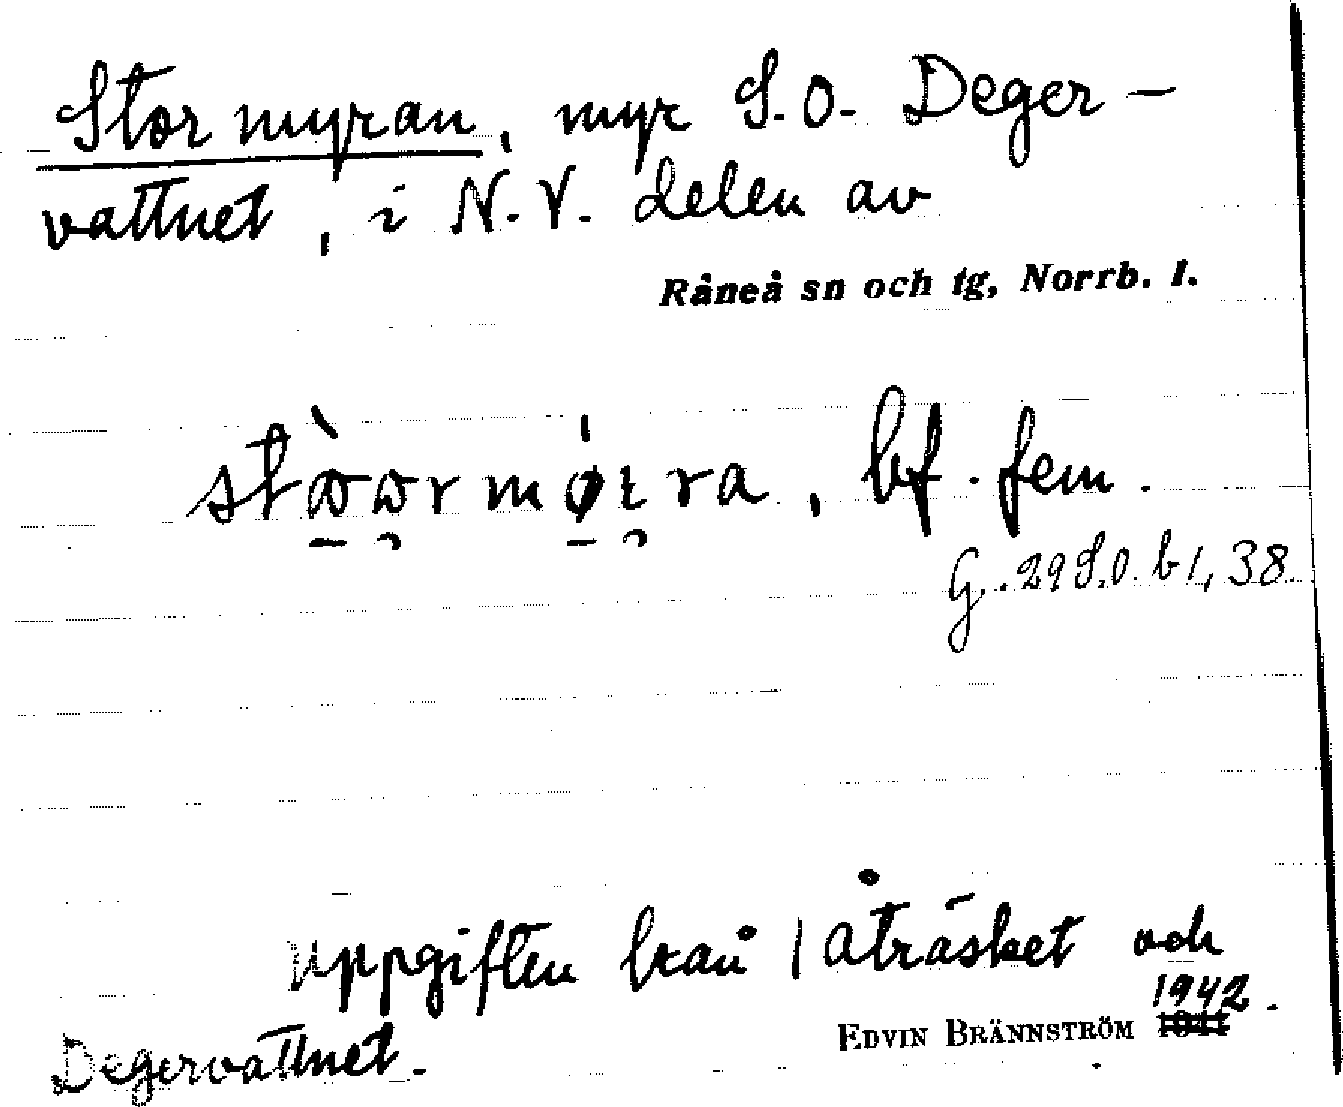 Stormyran, myr S.O. Deger-
vattnet, i N.V. delen av
Råneå sn och tg, Norrb. l.
bf. fem.
G. 29 S.O. b 1, 38
uppgiften från Åträsket och
Degervattnet.
EDVIN BRÄNNSTRÖM 1942.